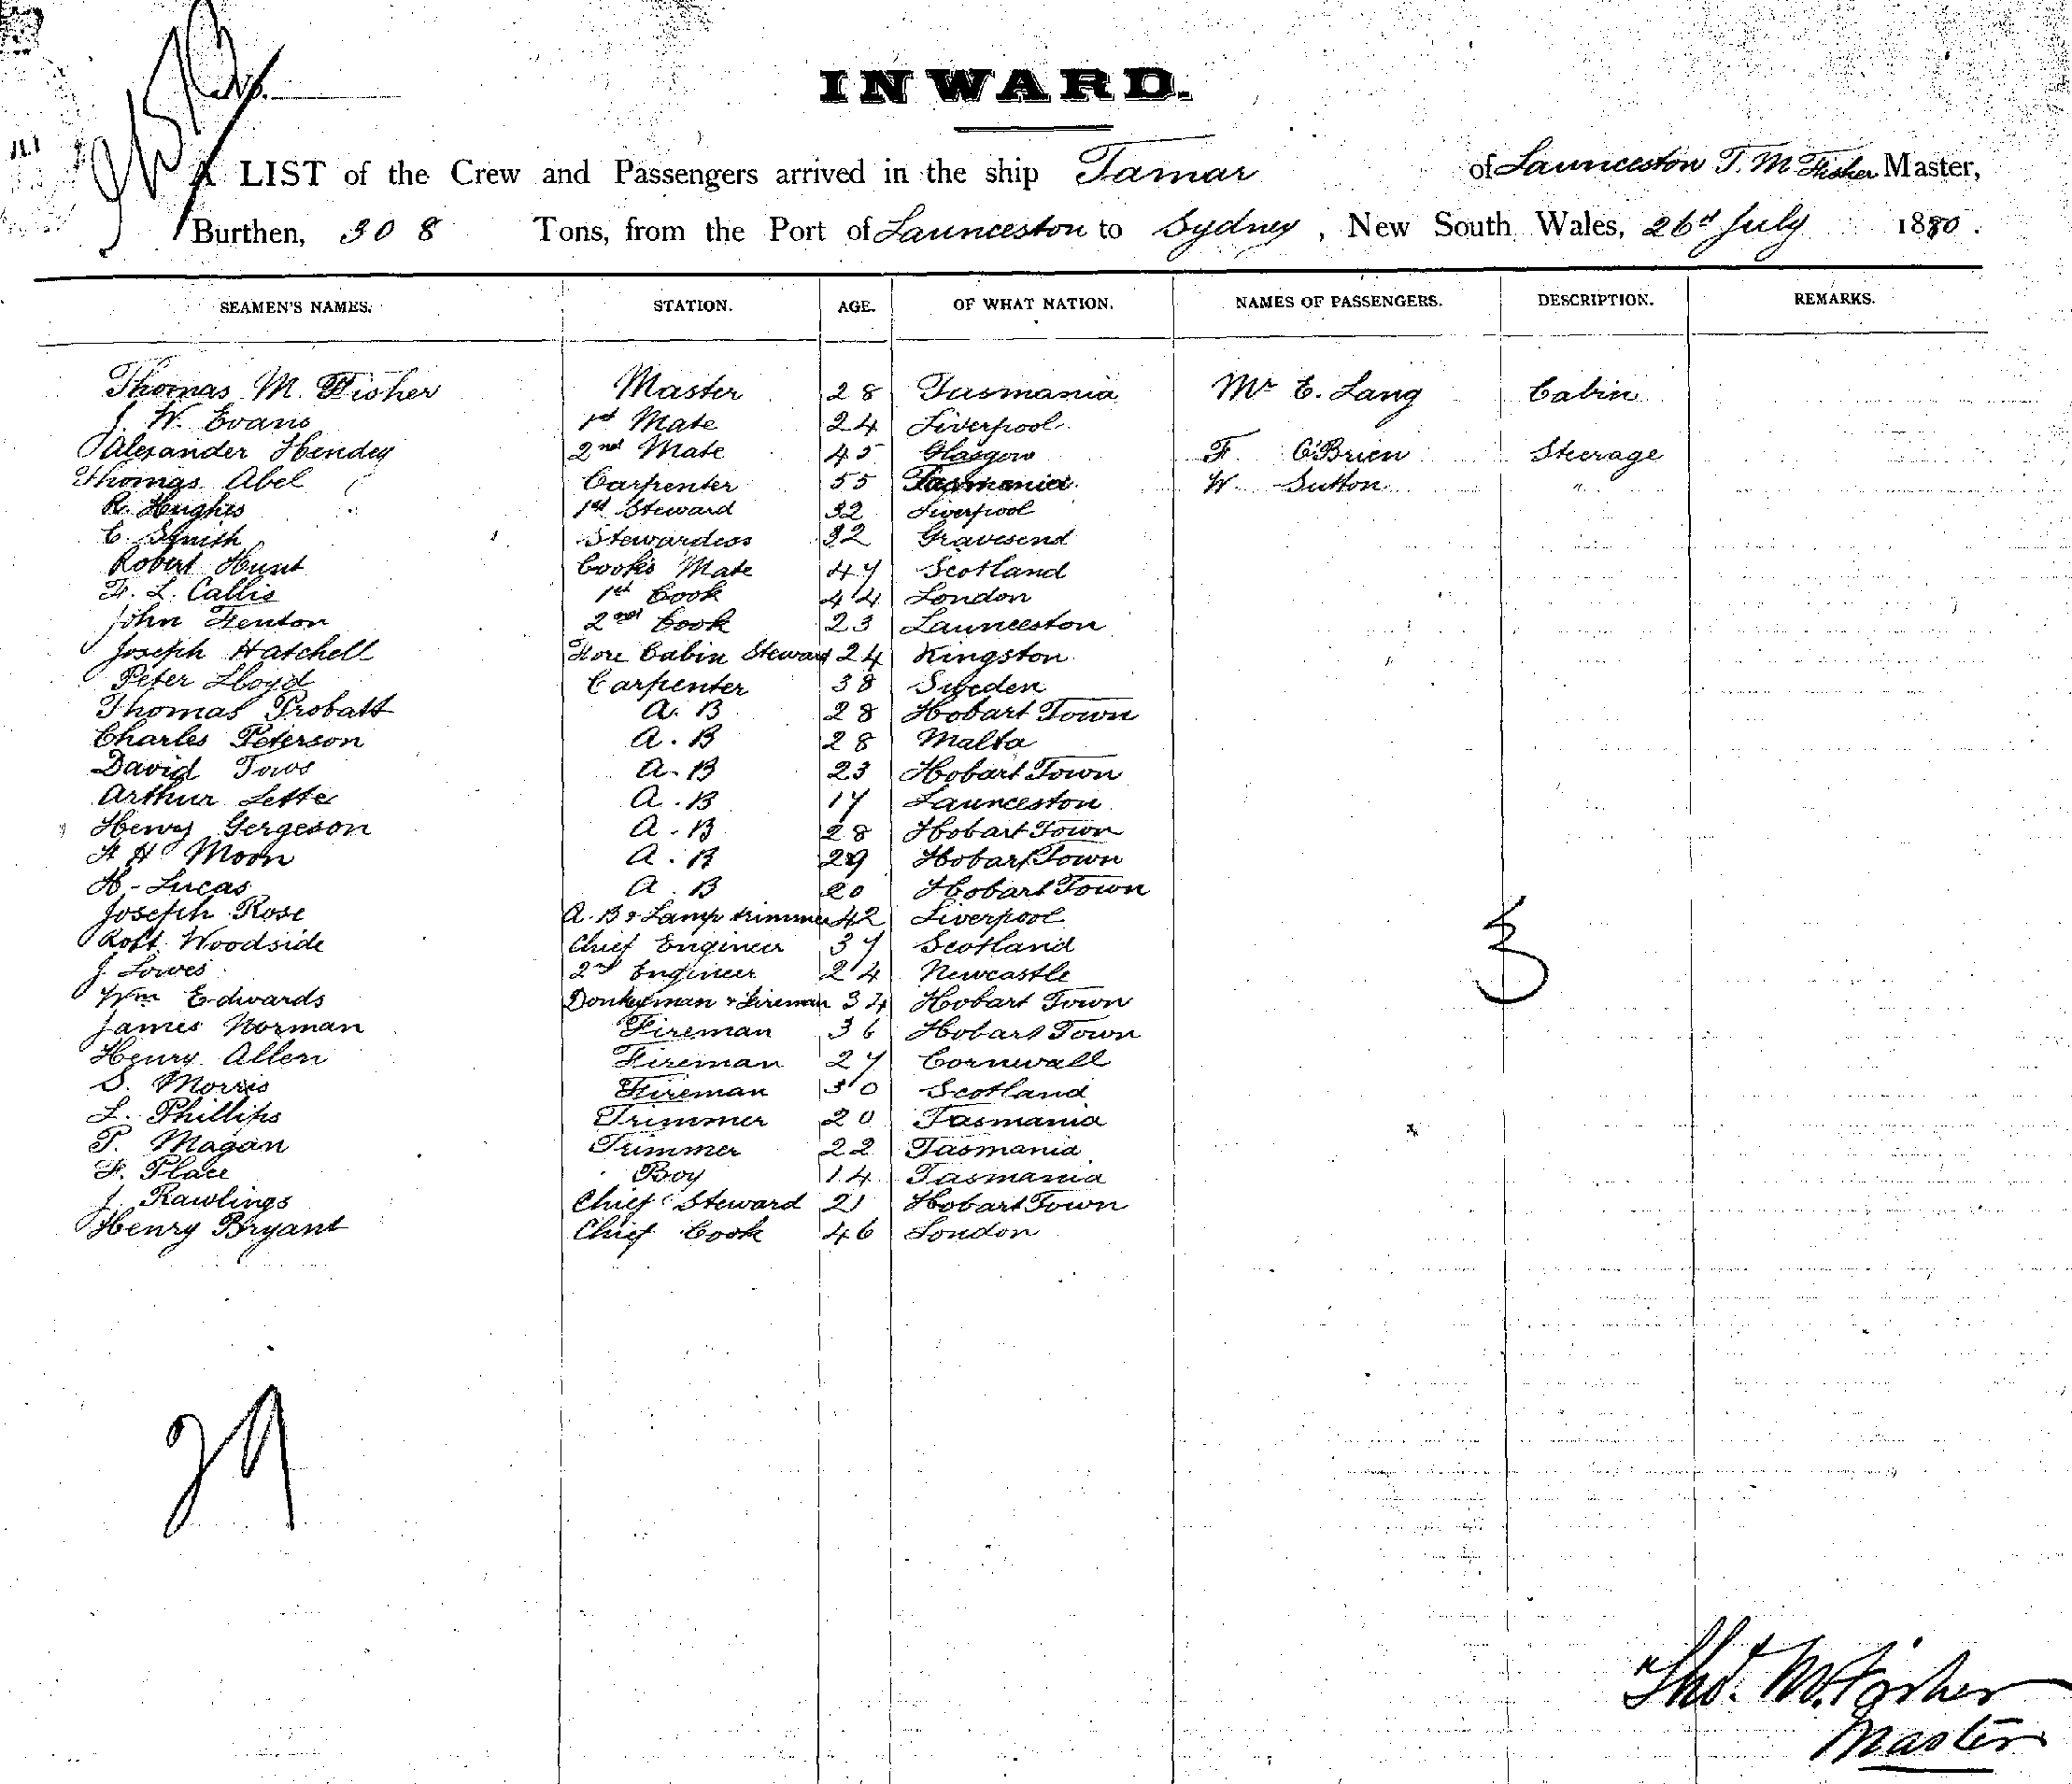 INWARD.
A LIST of the Crew and Passengers arrived in the ship Tamar of Launceston T. M. Fisher Master,
Burthen, 308 Tons, from the Port of Launceston to Sydney, New South Wales, 26th July 1880.
SEAMEN'S NAMES. STATION. AGE. OF WHAT NATION. NAMES OF PASSENGERS. DESCRIPTION. REMARKS.
Thomas M. Fisher Master 28 Tasmania Mr E. Lang Cabin
J. W. Evans 1st Mate 24 Liverpool
Alexander Hendey 2nd Mate 45 Glasgow F. O'Brien Steerage
Thomas Abel Carpenter 55 Tasmania W. Sutton "
R. Hughes 1st Steward 32 Liverpool
E. Smith Stewardess 32 Gravesend
Robert Hunt Cook's Mate 47 Scotland
F. L. Callis 1st Cook 44 London
John Fenton 2nd Cook 23 Launceston
Joseph Hatchell Fore Cabin Steward 24 Kingston
Peter Lloyd Carpenter 38 Sweden
Thomas Probatt A. B 28 Hobart Town
Charles Peterson A. B 28 Malta
David Tows A. B 23 Hobart Town
Arthur Lette A. B 17 Launceston
Henry Gergeson A. B 28 Hobart Town
H Moon A. B 29 Hobart Town
H. Lucas A. B 20 Hobart Town
Joseph Rose A. B & Lamp trimmer 42 Liverpool
Robt Woodside Chief Engineer 37 Scotland
J Lowes 2nd Engineer 24 Newcastle
Wm Edwards Donkeyman & Fireman 34 Hobart Town
James Norman Fireman 36 Hobart Town
Henry Allen Fireman 27 Cornwall
S. Morris Fireman 30 Scotland
L. Phillips Trimmer 20 Tasmania
P. Magan Trimmer 22 Tasmania
F. Place Boy 14 Tasmania
J. Rawlings Chief Steward 21 Hobart Town
Henry Bryant Chief Cook 46 London
3
29
Thos. M. Fisher
Master